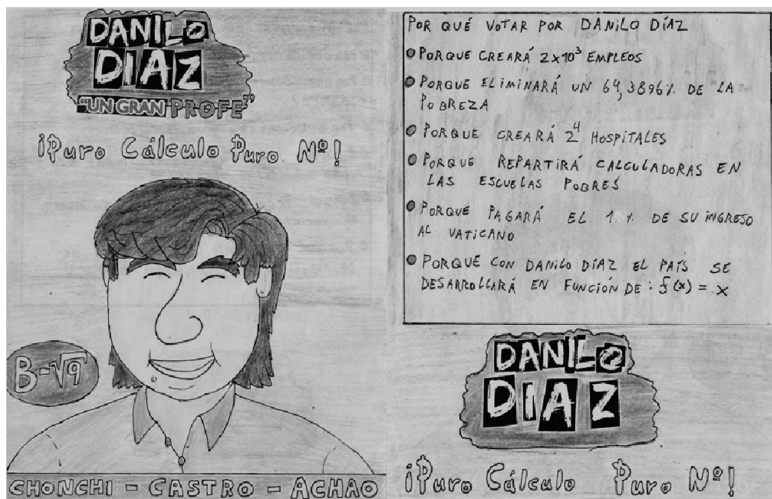 DANILO
DIAZ
"UN GRAN PROFE"
¡Puro Cálculo Puro Nº!
B-√9
CHONCHI - CASTRO - ACHAO
POR QUÉ VOTAR POR DANILO DÍAZ
PORQUE CREARÁ 2x10³ EMPLEOS
PORQUE ELIMINARÁ UN 64,3896% DE LA
POBREZA
PORQUE CREARÁ 2⁴ HOSPITALES
PORQUE REPARTIRÁ CALCULADORAS EN
LAS ESCUELAS POBRES
PORQUE PAGARÁ EL 1% DE SU INGRESO
AL VATICANO
PORQUE CON DANILO DÍAZ EL PAÍS SE
DESARROLLARÁ EN FUNCIÓN DE: f(x) = x
DANILO
DIAZ
¡Puro Cálculo Puro Nº!